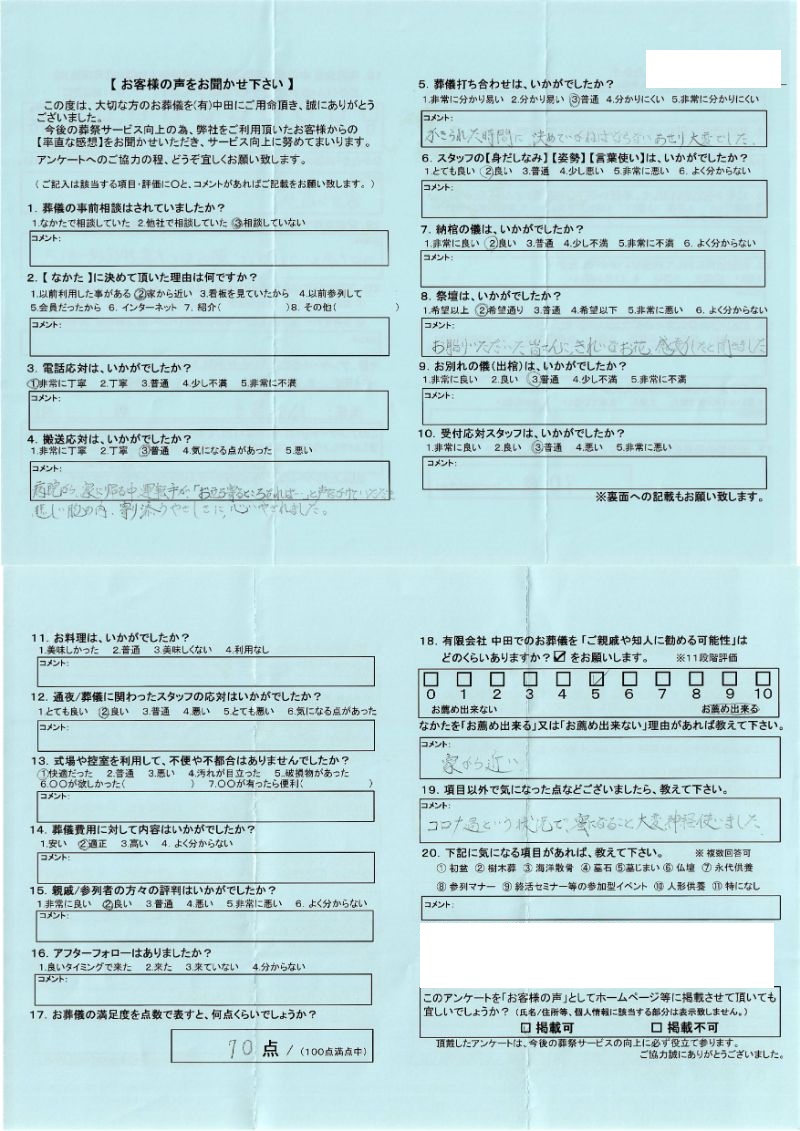 【 お客様の声をお聞かせ下さい 】
この度は、大切な方のお葬儀を(有)中田にご用命頂き、誠にありがとう
ございました。
今後の葬祭サービス向上の為、弊社をご利用頂いたお客様からの
【率直な感想】をお聞かせいただき、サービス向上に努めてまいります。
アンケートへのご協力の程、どうぞ宜しくお願い致します。
( ご記入は該当する項目・評価に〇と、コメントがあればご記載をお願い致します。)
1. 葬儀の事前相談はされていましたか?
1.なかたで相談していた 2.他社で相談していた ③相談していない
コメント:
2.【 なかた 】に決めて頂いた理由は何ですか?
1.以前利用した事がある ②家から近い 3.看板を見ていたから 4.以前参列して
5.会員だったから 6. インターネット 7. 紹介( )8. その他( )
コメント:
3. 電話応対は、いかがでしたか?
①非常に丁寧 2.丁寧 3.普通 4.少し不満 5.非常に不満
コメント:
4. 搬送応対は、いかがでしたか?
1.非常に丁寧 2.丁寧 ③普通 4.気になる点があった 5.悪い
コメント:
病院から、家に帰る中、運転手が、「お立ち寄るところがあれば…」と声をかけていただき
悲しい胸の内、寄り添うやさしさに、心いやされました。
5. 葬儀打ち合わせは、いかがでしたか?
1.非常に分かり易い 2.分かり易い ③普通 4.分かりにくい 5.非常に分かりにくい
コメント:
かぎられた時間に 決めていかねばならない あせり 大変でした。
6. スタッフの【身だしなみ】【姿勢】【言葉使い】は、いかがでしたか?
1.とても良い ②良い 3.普通 4.少し悪い 5.非常に悪い 6. よく分からない
コメント:
7. 納棺の儀は、いかがでしたか?
1.非常に良い ②良い 3.普通 4.少し不満 5.非常に不満 6. よく分からない
コメント:
8. 祭壇は、いかがでしたか?
1.希望以上 ②希望通り 3.普通 4.希望以下 5.非常に悪い 6. よく分からない
コメント:
お贈りいただいた 皆さんに、きれいなお花、感突したと聞きました
9. お別れの儀(出棺)は、いかがでしたか?
1.非常に良い 2.良い ③普通 4.少し不満 5.非常に不満
コメント:
10. 受付応対スタッフは、いかがでしたか?
1.非常に良い 2.良い ③普通 4.悪い 5.非常に悪い
コメント:
※裏面への記載もお願い致します。
11. お料理は、いかがでしたか?
1.美味しかった 2.普通 3.美味しくない 4.利用なし
コメント:
12. 通夜/葬儀に関わったスタッフの応対はいかがでしたか?
1.とても良い ②良い 3.普通 4.悪い 5.とても悪い 6.気になる点があった
コメント:
13. 式場や控室を利用して、不便や不都合はありませんでしたか?
①快適だった 2.普通 3.悪い 4.汚れが目立った 5.破損物があった
6.〇〇が欲しかった( ) 7.〇〇が有ったら便利( )
コメント:
14. 葬儀費用に対して内容はいかがでしたか?
1.安い ②適正 3.高い 4. よく分からない
コメント:
15. 親戚/参列者の方々の評判はいかがでしたか?
1.非常に良い ②良い 3.普通 4.悪い 5.非常に悪い 6. よく分からない
コメント:
16. アフターフォローはありましたか?
1.良いタイミングで来た 2.来た 3.来ていない 4.分からない
コメント:
17. お葬儀の満足度を点数で表すと、何点くらいでしょうか?
70 点 / (100点満点中)
18. 有限会社 中田でのお葬儀を「ご親戚や知人に勧める可能性」は
どのくらいありますか? ☑ をお願いします。 ※11段階評価
0 1 2 3 4 5 6 7 8 9 10
お薦め出来ない お薦め出来る
なかたを「お薦め出来る」又は「お薦め出来ない」理由があれば教えて下さい。
コメント:
家から近い
19. 項目以外で気になった点などございましたら、教えて下さい。
コメント:
コロナ過という状況で、密になること 大変神経使いました
20. 下記に気になる項目があれば、教えて下さい。 ※ 複数回答可
① 初盆 ② 樹木葬 ③ 海洋散骨 ④ 墓石 ⑤墓じまい ⑥ 仏壇 ⑦ 永代供養
⑧ 参列マナー ⑨ 終活セミナー等の参加型イベント ⑩ 人形供養 ⑪ 特になし
コメント:
このアンケートを「お客様の声」としてホームページ等に掲載させて頂いても
宜しいでしょうか? (氏名/住所等、個人情報に該当する部分は表示致しません。)
☐ 掲載可 ☐ 掲載不可
頂戴したアンケートは、今後の葬祭サービスの向上に必ず役立て参ります。
ご協力誠にありがとうございました。